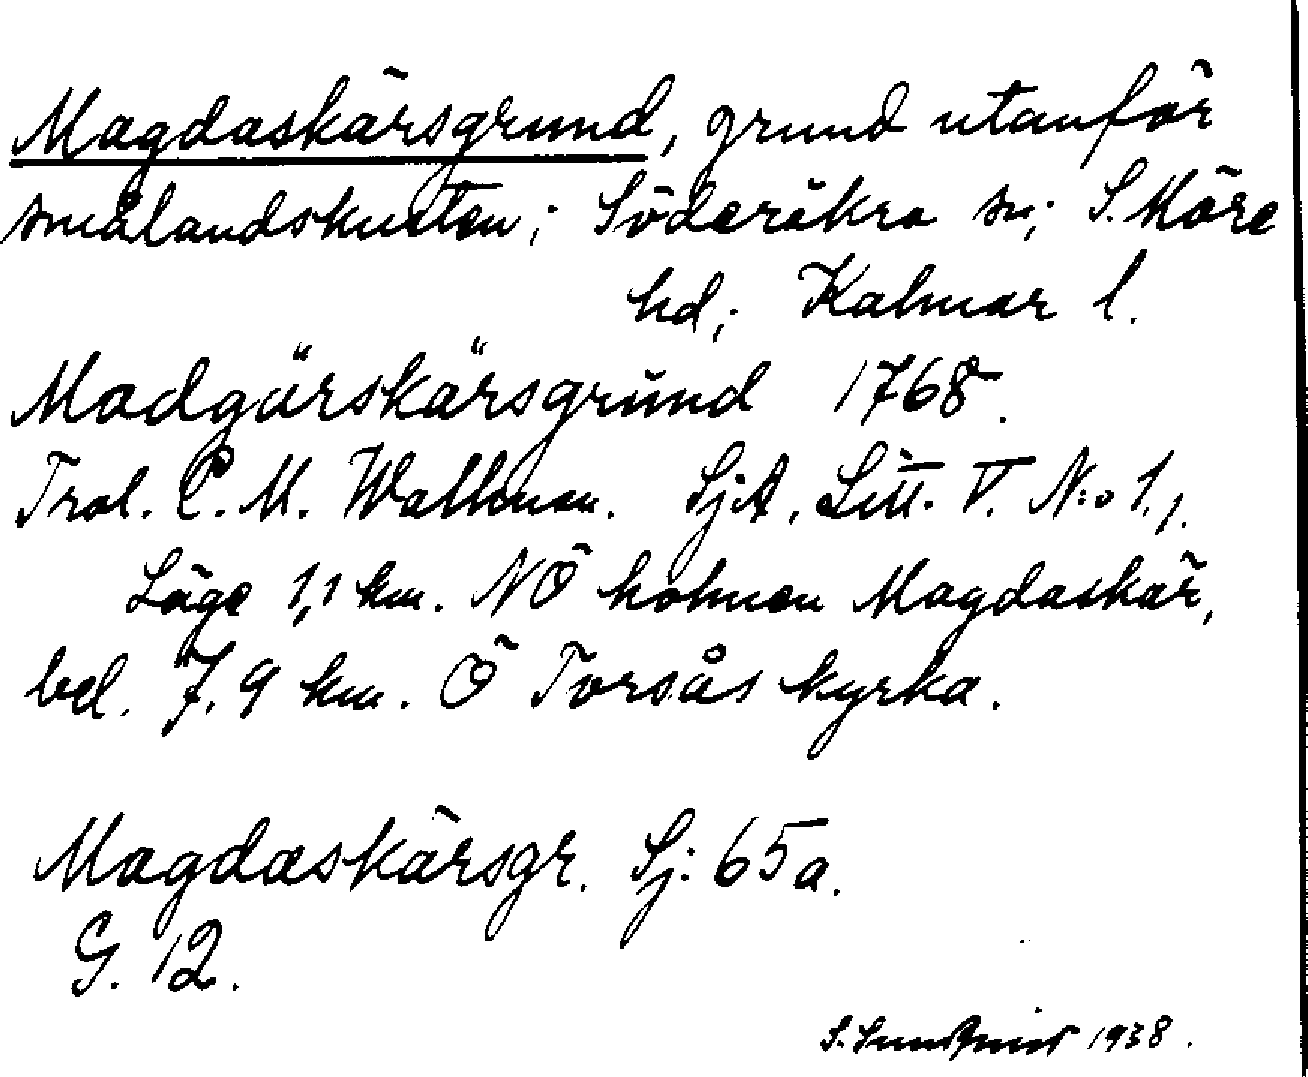 Magdaskärsgrund, grund utanför
smålandskusten; Söderåkra sn; S. Möre
hd; Kalmar l.
Madgärskärsgrund 1768.
Trol. C. M. Wallman. SjA, Litt. V. N:o 1.
Läge 1,1 km. NÖ holmen Magdaskär,
bel. 7,9 km. Ö Torsås kyrka.
Magdaskärsgr. Sj: 65a.
G. 12.
S. 1938.